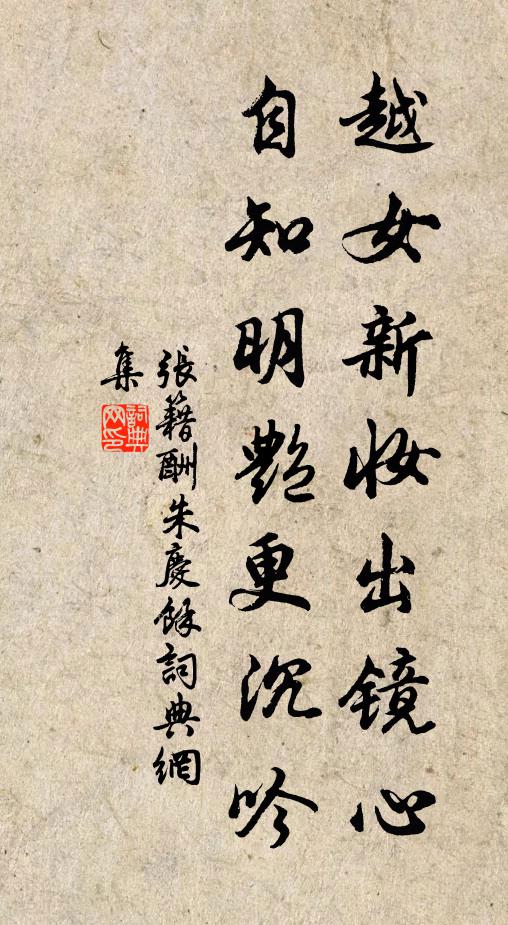 越女新妝出镜心
自知明艷更沉吟
張籍酬朱慶餘詞典網
集
詞典
网印